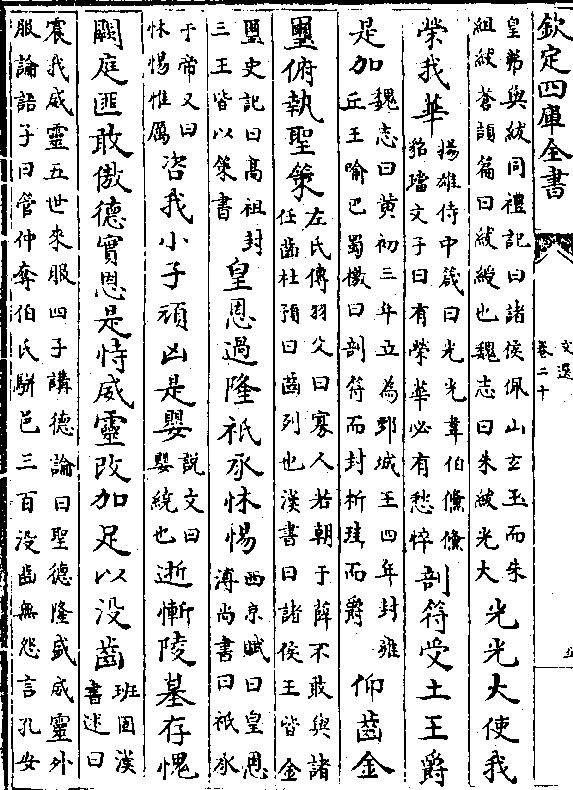 欽定四庫全書
文選
卷二十
五
皇弟與紱同禮記曰諸侯佩山玄玉而朱
組紱蒼頡篇曰紱綬也魏志曰朱紱光大
光光大使我
榮我華
揚雄侍中箴曰光光韋伯儵儵
貂璫文子曰有榮華必有愁悴
剖符受土王爵
是加
魏志曰黄初三年立為鄄城王四年封雍
丘王喻巴蜀檄曰剖符而封析珪而爵
仰齒金
璽俯執聖策
左氏傳羽父曰寡人若朝于薛不敢與諸
任齒杜預曰齒列也漢書曰諸侯王皆金
璽史記曰高祖封
三王皆以策書
皇恩過隆祇承怵惕
西京賦曰皇恩
溥尚書曰祇承
于帝又曰
怵惕惟厲
咨我小子頑凶是嬰
說文曰
嬰繞也
逝慚陵墓存愧
闕庭匪敢傲德實恩是恃威靈改加足以没齒
班固漢
書述曰
震我威靈五世來服四子講德論曰聖德隆盛威靈外
服論語子曰管仲奪伯氏駢邑三百没齒無怨言孔安